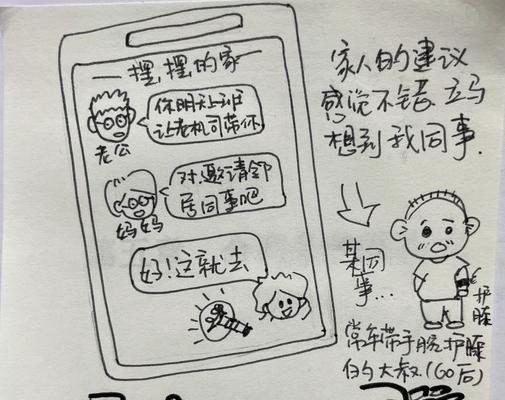 摆摆的家
你明天上班
让老机司带你
老公
对.邀请邻
居同事吧
妈妈
好!这就去
家人的建议
感觉不错.立马
想到我同事.
某同
事...
护腕
常年带手腕护腕
的大叔(60后)